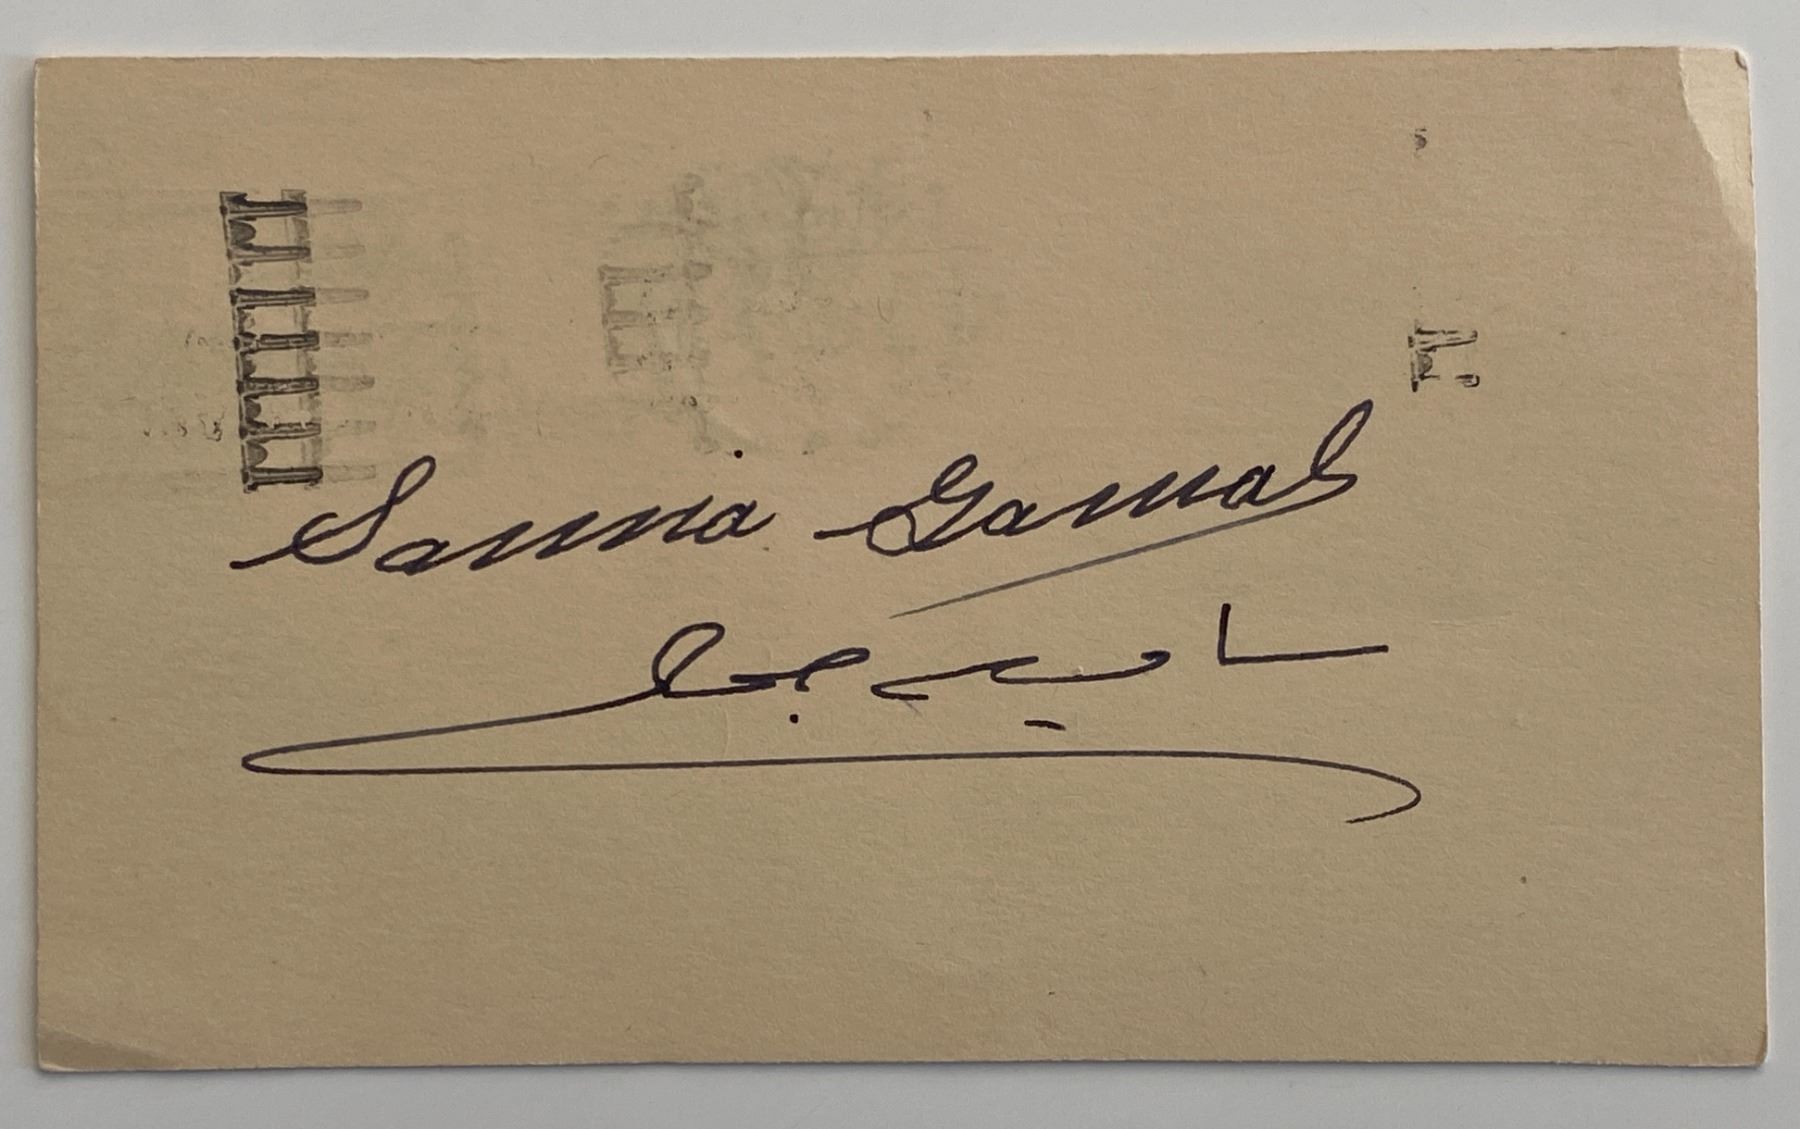 Samia Gamal
سامية جمال